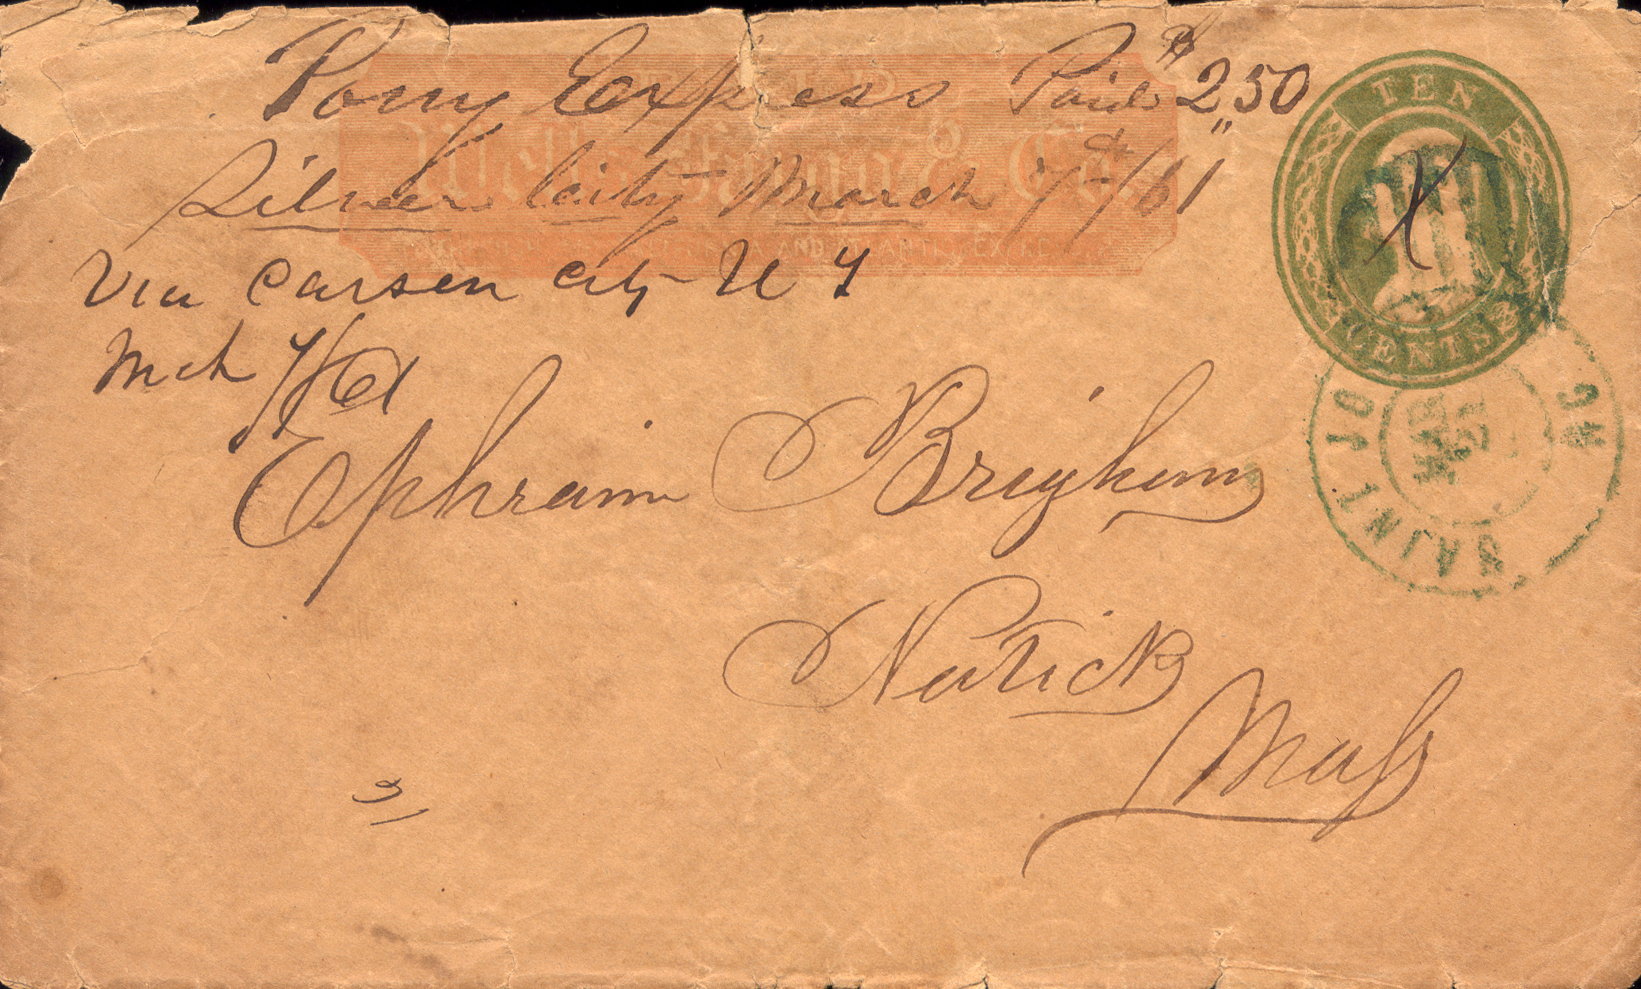 Pony Express Paid $2,50
PAID
Wells Fargo & Co
Silver City March 7th/61
Via Carson City U T
Mch 7/61
Ephraim Brigham
Natick
Mass
TEN
CENTS
X
SAINT JO
MAR
21
MO